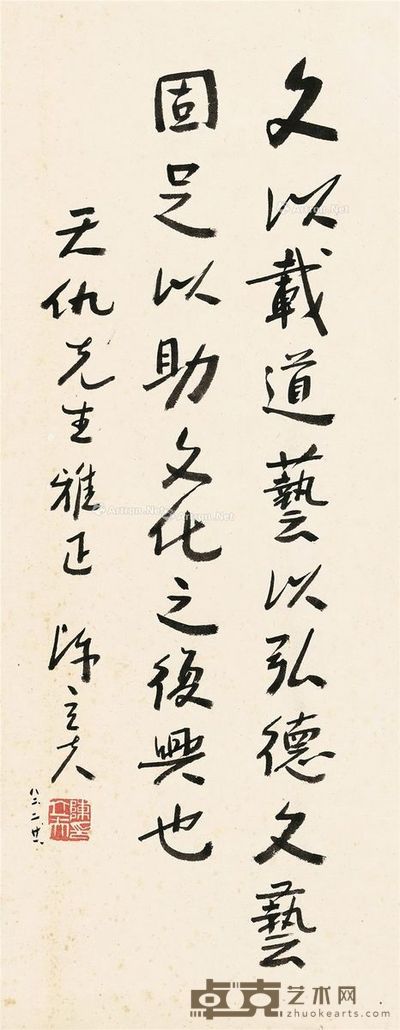 文以載道藝以弘德文藝
固足以助文化之復興也
天仇先生雅正 陳立夫
八三、二、廿六
陳立夫印
Artron.Net
Artron.Net
Artron.Net
卓克艺术网
zhuokearts.com